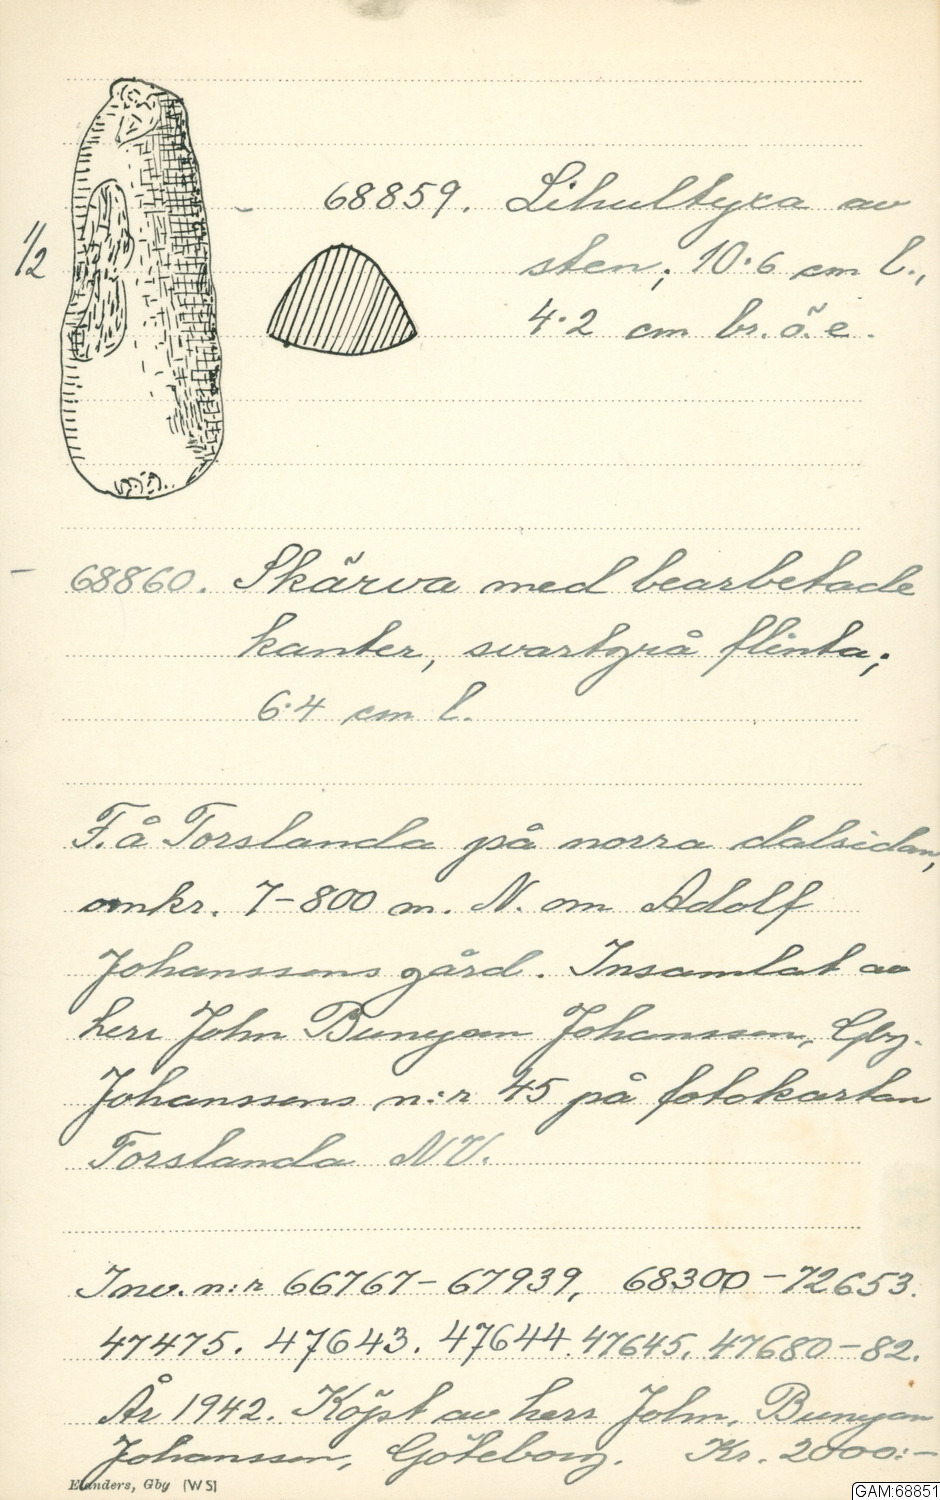 68859. Lihultyxa av
1/2
sten; 10·6 cm l.,
4·2 cm br. ö. e.
68860. Skärva med bearbetade
kanter, svartgrå flinta;
6·4 cm l.
F. å Torslanda på norra dalsidan,
omkr. 7-800 m. N. om Adolf
Johanssons gård. Insamlat av
herr John Bunyan Johansson, Gbg.
Johanssons n:r 45 på fotokartan
Torslanda NV.
Inv. n:r 66767-67939, 68300-72653.
47475. 47643. 47644. 47645. 47680-82.
År 1942. Köpt av herr John Bunyan
Johansson, Göteborg. Kr. 2000:-
Elanders, Gby (WS)
GAM:68851